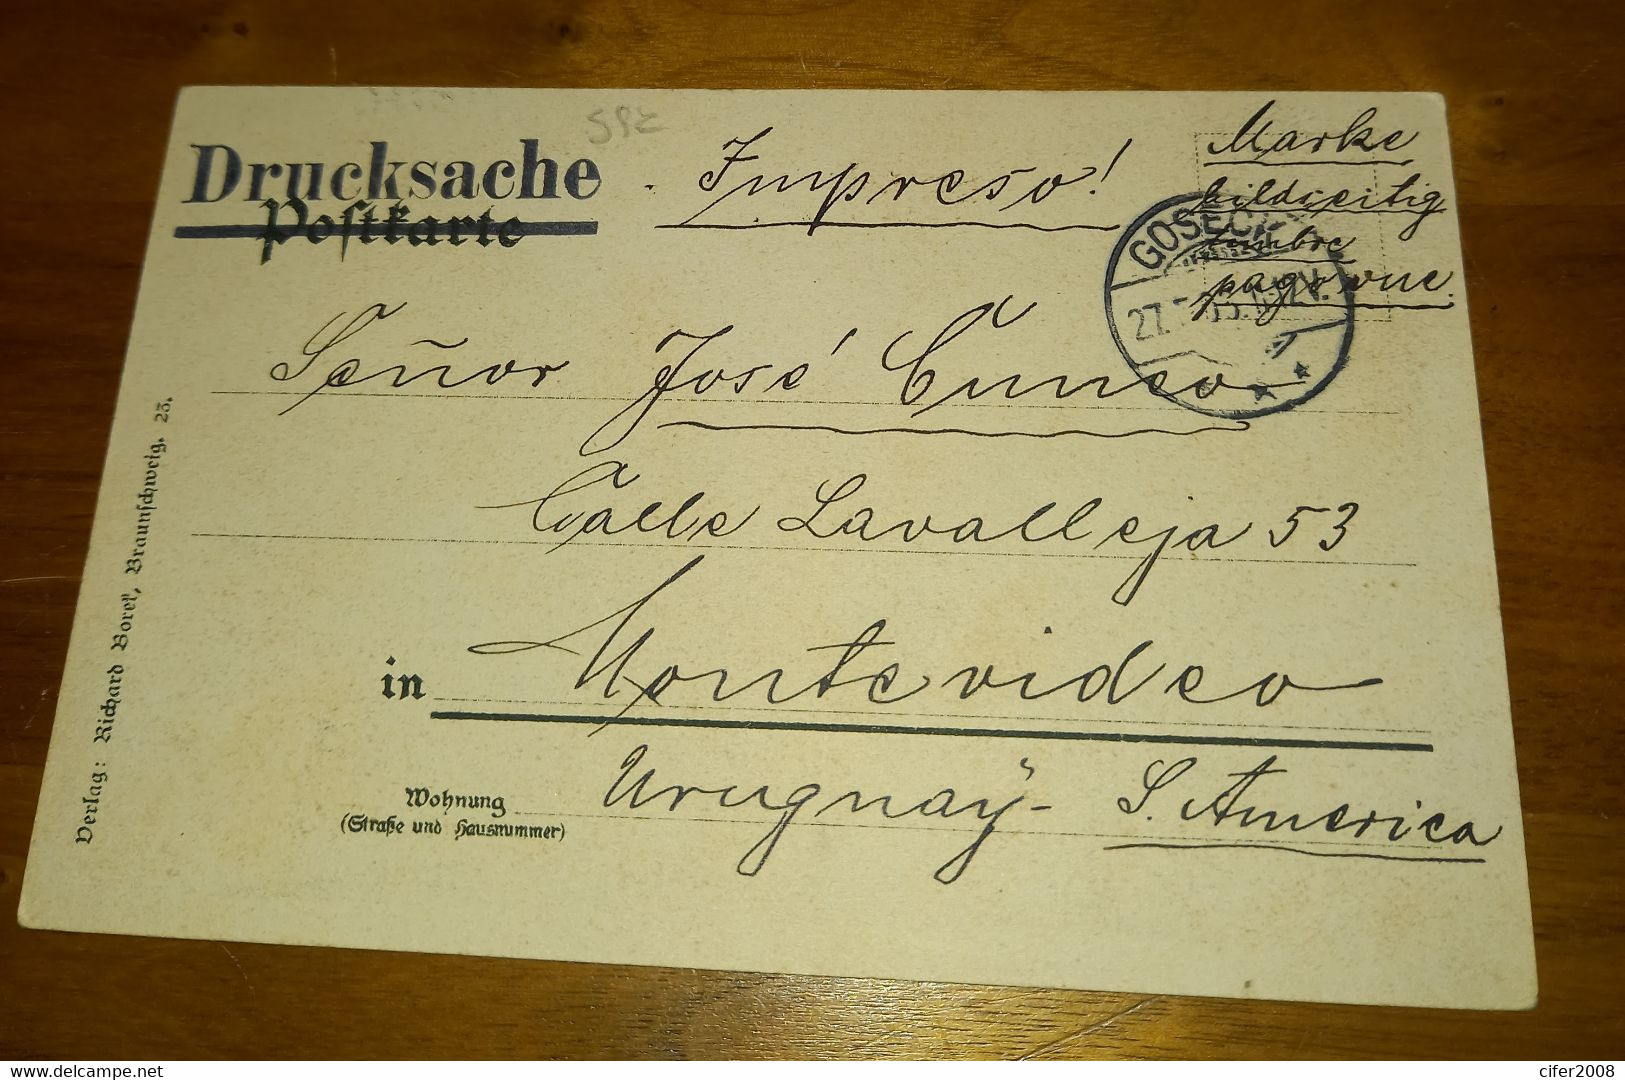 Drucksache
Postkarte
Impreso!
Marke
bildseitig
timbre
pago vue.
GOSECK
27.
Señor José Cuneo
Calle Lavalleja 53
in Montevideo
Uruguay - S. America
Wohnung
(Straße und Hausnummer)
Verlag: Richard Borek, Braunschweig. 23.
delcampe.net
cifer2008